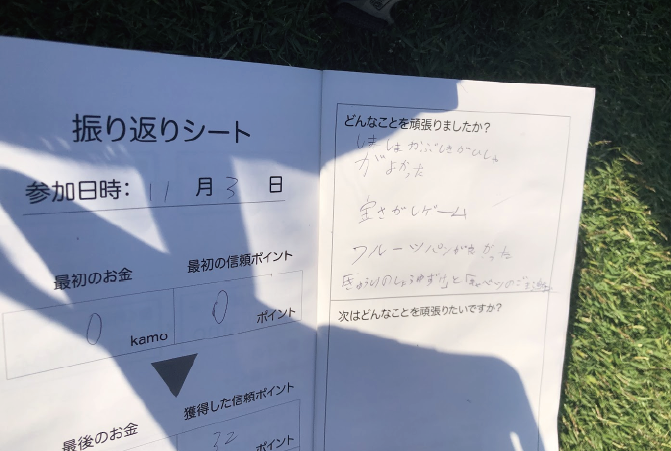 振り返りシート
参加日時: 11月3日
最初のお金
最初の信頼ポイント
0 kamo
0 ポイント
最後のお金
獲得した信頼ポイント
22 ポイント
どんなことを頑張りましたか?
かぶしきがいしゃ
がよかった
宝さがしゲーム
フルーツパンがよかった
きゅうりのしょうゆづけとキャベツの
次はどんなことを頑張りたいですか?